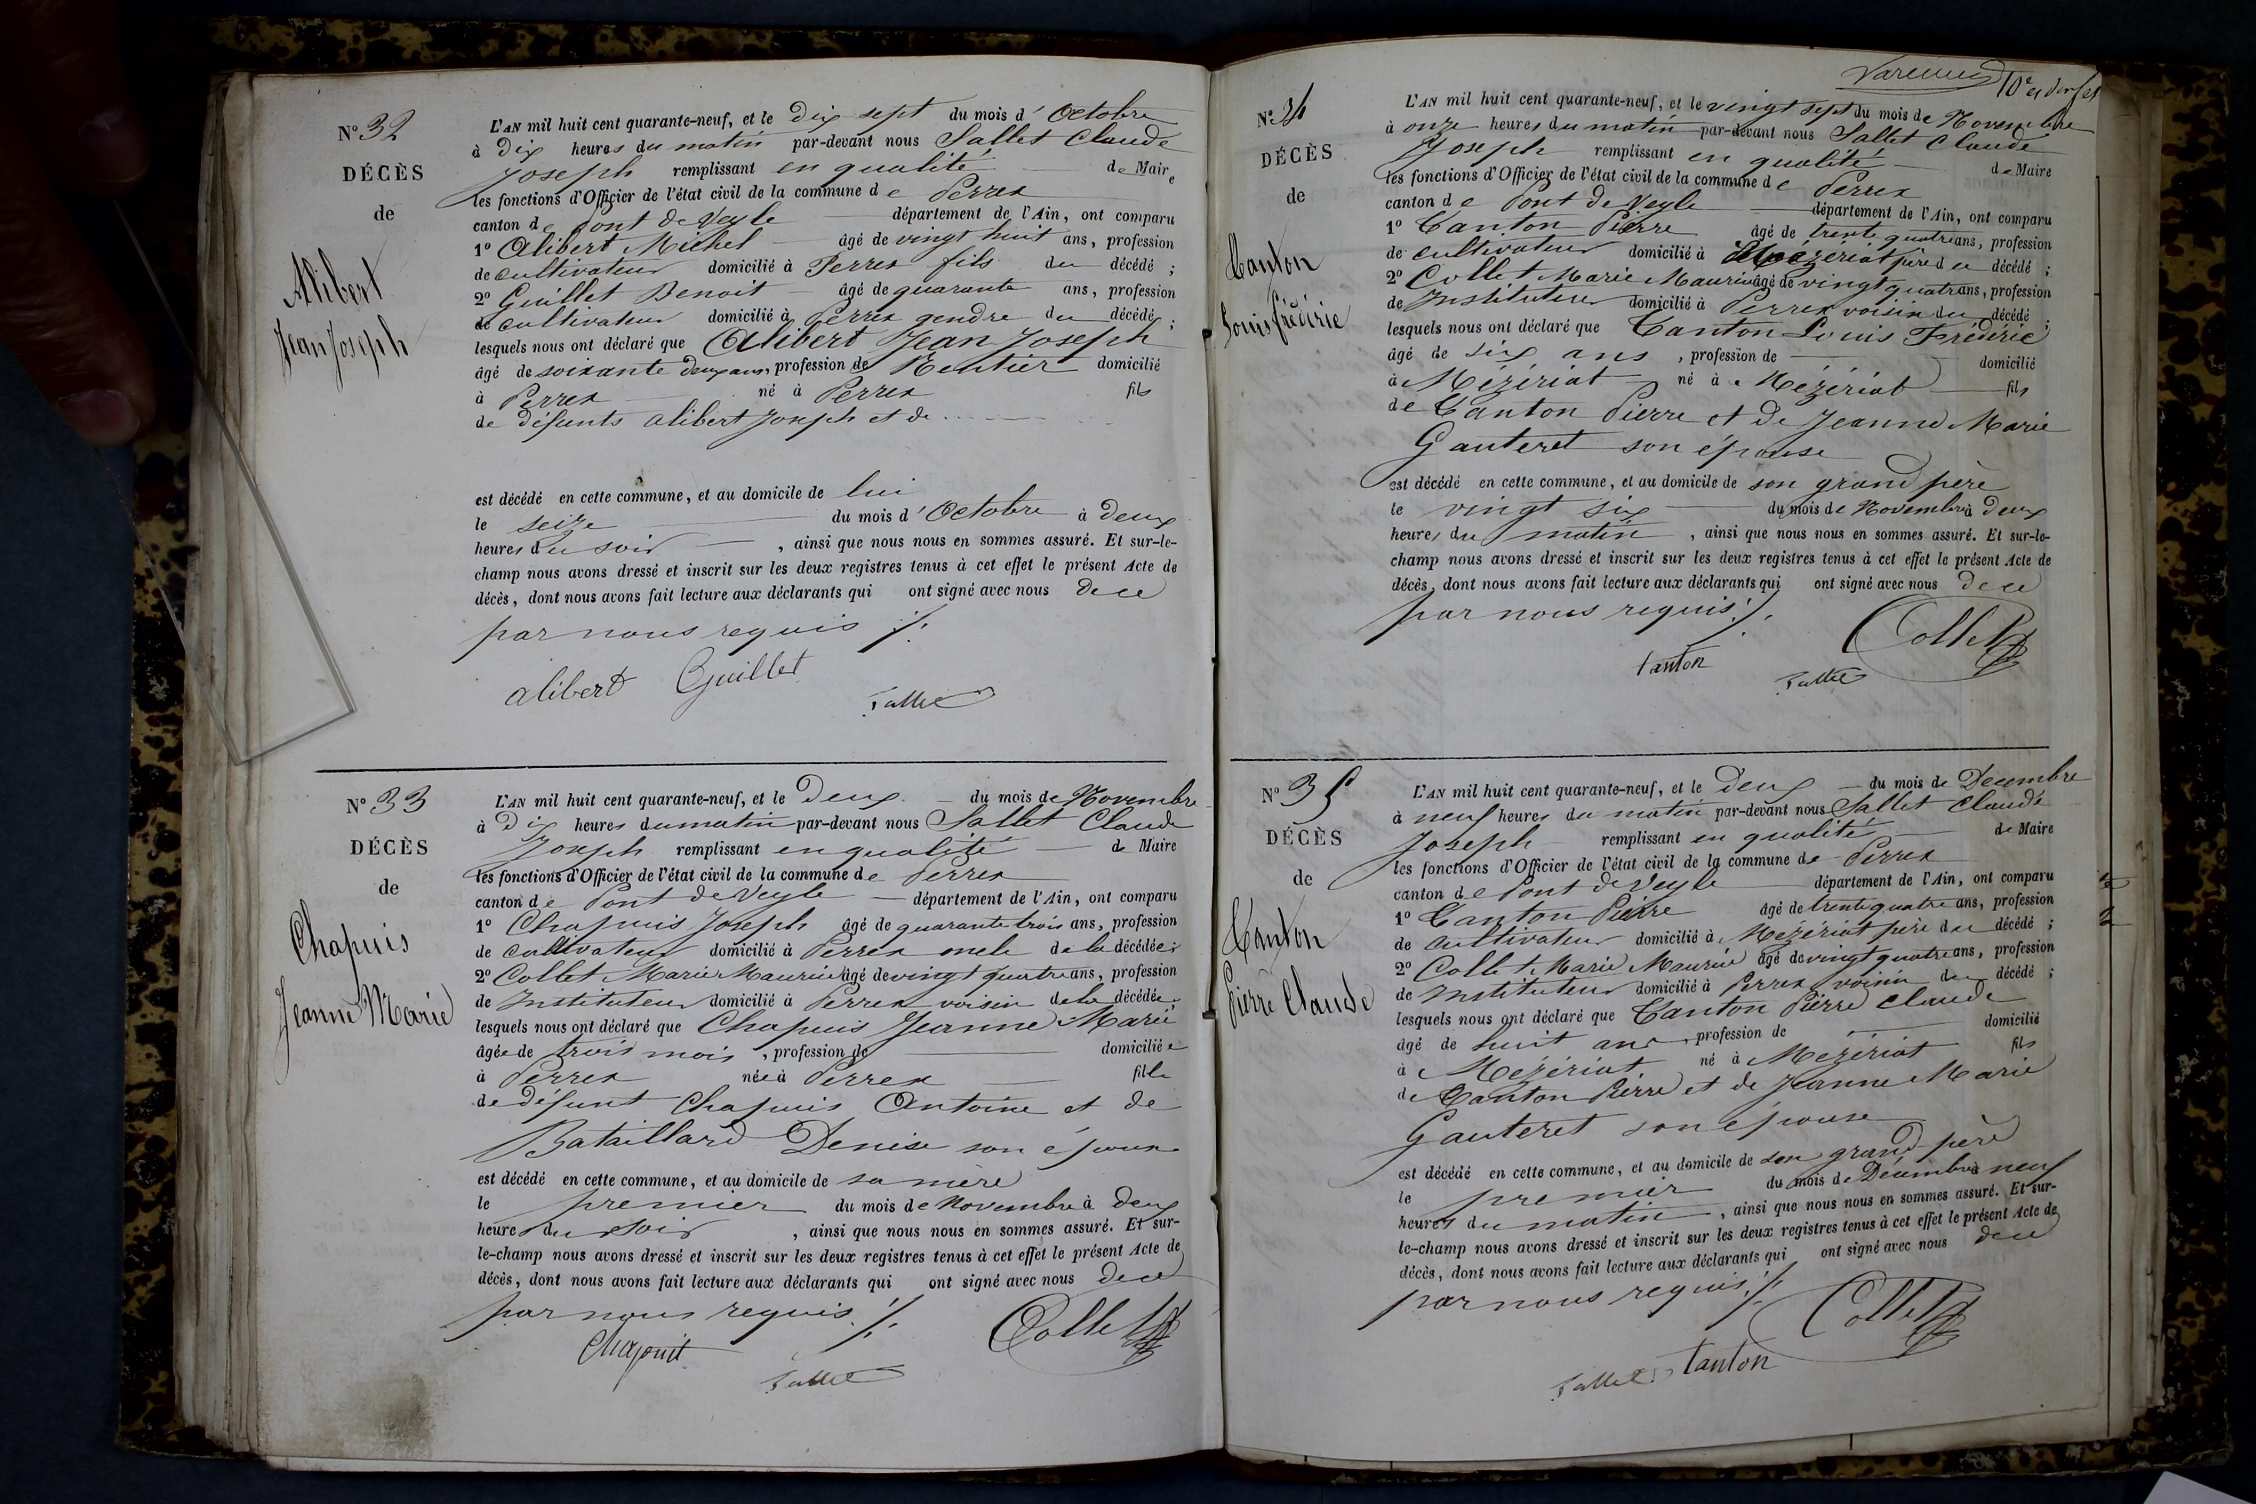 N° 32
DÉCÈS
de
Alibert
Jean Joseph
L'AN mil huit cent quarante-neuf, et le Dix sept du mois d' Octobre
à Dix heures du matin par-devant nous Sallet Claude
Joseph remplissant en qualité de Maire
les fonctions d'Officier de l'état civil de la commune de Perrex
canton de Pont de Veyle département de l'Ain, ont comparu
1° Alibert Michel âgé de vingt huit ans, profession
de cultivateur domicilié à Perrex fils du décédé ;
2° Guillet Benoit âgé de quarante ans, profession
de cultivateur domicilié à Perrex gendre du décédé ;
lesquels nous ont déclaré que Alibert Jean Joseph
âgé de soixante deux ans, profession de Rentier domicilié
à Perrex né à Perrex fils
de défunts alibert Joseph et de
est décédé en cette commune, et au domicile de lui
le seize du mois d' Octobre à deux
heures du soir , ainsi que nous nous en sommes assuré. Et sur-le-
champ nous avons dressé et inscrit sur les deux registres tenus à cet effet le présent Acte de
décès, dont nous avons fait lecture aux déclarants qui ont signé avec nous de ce
par nous requis ./.
alibert Guillet
Sallet
N° 33
DÉCÈS
de
Chapuis
Jeanne Marie
L'AN mil huit cent quarante-neuf, et le Deux du mois de Novembre
à Dix heures du matin par-devant nous Sallet Claude
Joseph remplissant en qualité de Maire
les fonctions d'Officier de l'état civil de la commune de Perrex
canton de Pont de Veyle département de l'Ain, ont comparu
1° Chapuis Joseph âgé de quarante trois ans, profession
de cultivateur domicilié à Perrex oncle de la décédée ;
2° Collet Marie Maurice âgé de vingt quatre ans, profession
de Instituteur domicilié à Perrex voisin de la décédée ;
lesquels nous ont déclaré que Chapuis Jeanne Marie
âgée de trois mois , profession de domiciliée
à Perrex née à Perrex fille
de défunt Chapuis Antoine et de
Bataillard Denise son épouse
est décédé en cette commune, et au domicile de sa mère
le premier du mois de Novembre à deux
heures du soir , ainsi que nous nous en sommes assuré. Et sur-
le-champ nous avons dressé et inscrit sur les deux registres tenus à cet effet le présent Acte de
décès, dont nous avons fait lecture aux déclarants qui ont signé avec nous de ce
par nous requis ./.
Collet
Chapuit
Sallet
10e et
N° 34
DÉCÈS
de
Tanton
Louis frédéric
L'AN mil huit cent quarante-neuf, et le vingt sept du mois de Novembre
à onze heures du matin par-devant nous Sallet Claude
Joseph remplissant en qualité de Maire
les fonctions d'Officier de l'état civil de la commune de Perrex
canton de Pont de Veyle département de l'Ain, ont comparu
1° Tanton Pierre âgé de trente quatre ans, profession
de cultivateur domicilié à Mézériat père du décédé ;
2° Collet Marie Maurice âgé de vingt quatre ans, profession
de Instituteur domicilié à Perrex voisin du décédé ;
lesquels nous ont déclaré que Tanton Louis Frédéric
âgé de six ans , profession de domicilié
à Mézériat né à Mézériat fils
de Tanton Pierre et de Jeanne Marie
Gauteret son épouse
est décédé en cette commune, et au domicile de son grand père
le vingt six du mois de Novembre à deux
heures du matin , ainsi que nous nous en sommes assuré. Et sur-le-
champ nous avons dressé et inscrit sur les deux registres tenus à cet effet le présent Acte de
décès, dont nous avons fait lecture aux déclarants qui ont signé avec nous de ce
par nous requis ./.
Collet
tanton
Sallet
N° 35
DÉCÈS
de
Tanton
Pierre Claude
L'AN mil huit cent quarante-neuf, et le Deux du mois de Decembre
à neuf heures du matin par-devant nous Sallet Claude
Joseph remplissant en qualité de Maire
les fonctions d'Officier de l'état civil de la commune de Perrex
canton de Pont de Veyle département de l'Ain, ont comparu
1° Tanton Pierre âgé de trente quatre ans, profession
de cultivateur domicilié à Mézériat père du décédé ;
2° Collet Marie Maurice âgé de vingt quatre ans, profession
de Instituteur domicilié à Perrex voisin du décédé ;
lesquels nous ont déclaré que Tanton Pierre Claude
âgé de huit ans , profession de domicilié
à Mézériat né à Mézériat fils
de Tanton Pierre et de Jeanne Marie
Gauteret son épouse
est décédé en cette commune, et au domicile de son grand père
le premier du mois de Décembre à neuf
heures du matin , ainsi que nous nous en sommes assuré. Et sur-
le-champ nous avons dressé et inscrit sur les deux registres tenus à cet effet le présent Acte de
décès, dont nous avons fait lecture aux déclarants qui ont signé avec nous de ce
par nous requis ./.
Collet
Sallet tanton